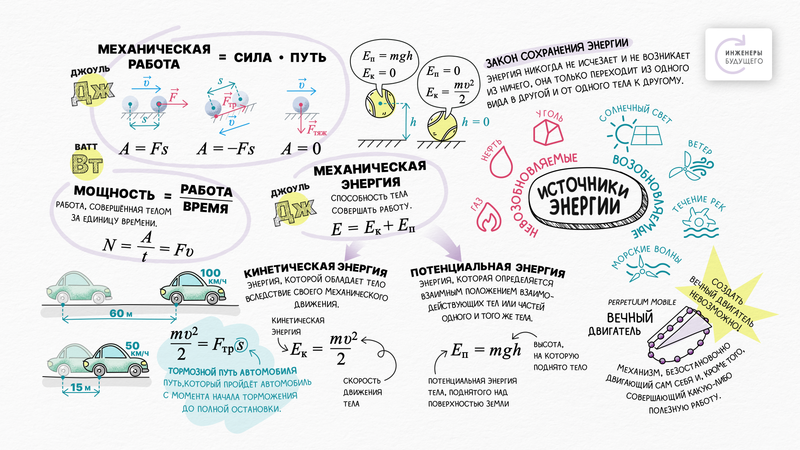 МЕХАНИЧЕСКАЯ РАБОТА = СИЛА • ПУТЬ
ДЖОУЛЬ
Дж
v
s
F
s
Fтр
v
v
Fтяж
A = Fs
A = −Fs
A = 0
Eп = mgh
Eк = 0
Eп = 0
Eк = mv²/2
h
h = 0
ЗАКОН СОХРАНЕНИЯ ЭНЕРГИИ
ЭНЕРГИЯ НИКОГДА НЕ ИСЧЕЗАЕТ И НЕ ВОЗНИКАЕТ
ИЗ НИЧЕГО, ОНА ТОЛЬКО ПЕРЕХОДИТ ИЗ ОДНОГО
ВИДА В ДРУГОЙ И ОТ ОДНОГО ТЕЛА К ДРУГОМУ.
ИНЖЕНЕРЫ
БУДУЩЕГО
ВАТТ
Вт
МОЩНОСТЬ = РАБОТА / ВРЕМЯ
РАБОТА, СОВЕРШЁННАЯ ТЕЛОМ
ЗА ЕДИНИЦУ ВРЕМЕНИ.
N = A/t = Fv
МЕХАНИЧЕСКАЯ
ЭНЕРГИЯ
ДЖОУЛЬ
Дж
СПОСОБНОСТЬ ТЕЛА
СОВЕРШАТЬ РАБОТУ.
E = Eк + Eп
ИСТОЧНИКИ
ЭНЕРГИИ
НЕВОЗОБНОВЛЯЕМЫЕ
ГАЗ
НЕФТЬ
УГОЛЬ
ВОЗОБНОВЛЯЕМЫЕ
СОЛНЕЧНЫЙ СВЕТ
ВЕТЕР
ТЕЧЕНИЕ РЕК
МОРСКИЕ ВОЛНЫ
100
КМ/Ч
60 м
50
КМ/Ч
15 м
mv²/2 = Fтр s
ТОРМОЗНОЙ ПУТЬ АВТОМОБИЛЯ
ПУТЬ, КОТОРЫЙ ПРОЙДЁТ АВТОМОБИЛЬ
С МОМЕНТА НАЧАЛА ТОРМОЖЕНИЯ
ДО ПОЛНОЙ ОСТАНОВКИ.
КИНЕТИЧЕСКАЯ ЭНЕРГИЯ
ЭНЕРГИЯ, КОТОРОЙ ОБЛАДАЕТ ТЕЛО
ВСЛЕДСТВИЕ СВОЕГО МЕХАНИЧЕСКОГО
ДВИЖЕНИЯ.
КИНЕТИЧЕСКАЯ
ЭНЕРГИЯ
Eк = mv²/2
СКОРОСТЬ
ДВИЖЕНИЯ
ТЕЛА
ПОТЕНЦИАЛЬНАЯ ЭНЕРГИЯ
ЭНЕРГИЯ, КОТОРАЯ ОПРЕДЕЛЯЕТСЯ
ВЗАИМНЫМ ПОЛОЖЕНИЕМ ВЗАИМО-
ДЕЙСТВУЮЩИХ ТЕЛ ИЛИ ЧАСТЕЙ
ОДНОГО И ТОГО ЖЕ ТЕЛА.
Eп = mgh
ВЫСОТА,
НА КОТОРУЮ
ПОДНЯТО ТЕЛО
ПОТЕНЦИАЛЬНАЯ ЭНЕРГИЯ
ТЕЛА, ПОДНЯТОГО НАД
ПОВЕРХНОСТЬЮ ЗЕМЛИ
СОЗДАТЬ
ВЕЧНЫЙ ДВИГАТЕЛЬ
НЕВОЗМОЖНО!
PERPETUUM MOBILE
ВЕЧНЫЙ
ДВИГАТЕЛЬ
МЕХАНИЗМ, БЕЗОСТАНОВОЧНО
ДВИГАЮЩИЙ САМ СЕБЯ И, КРОМЕ ТОГО,
СОВЕРШАЮЩИЙ КАКУЮ-ЛИБО
ПОЛЕЗНУЮ РАБОТУ.